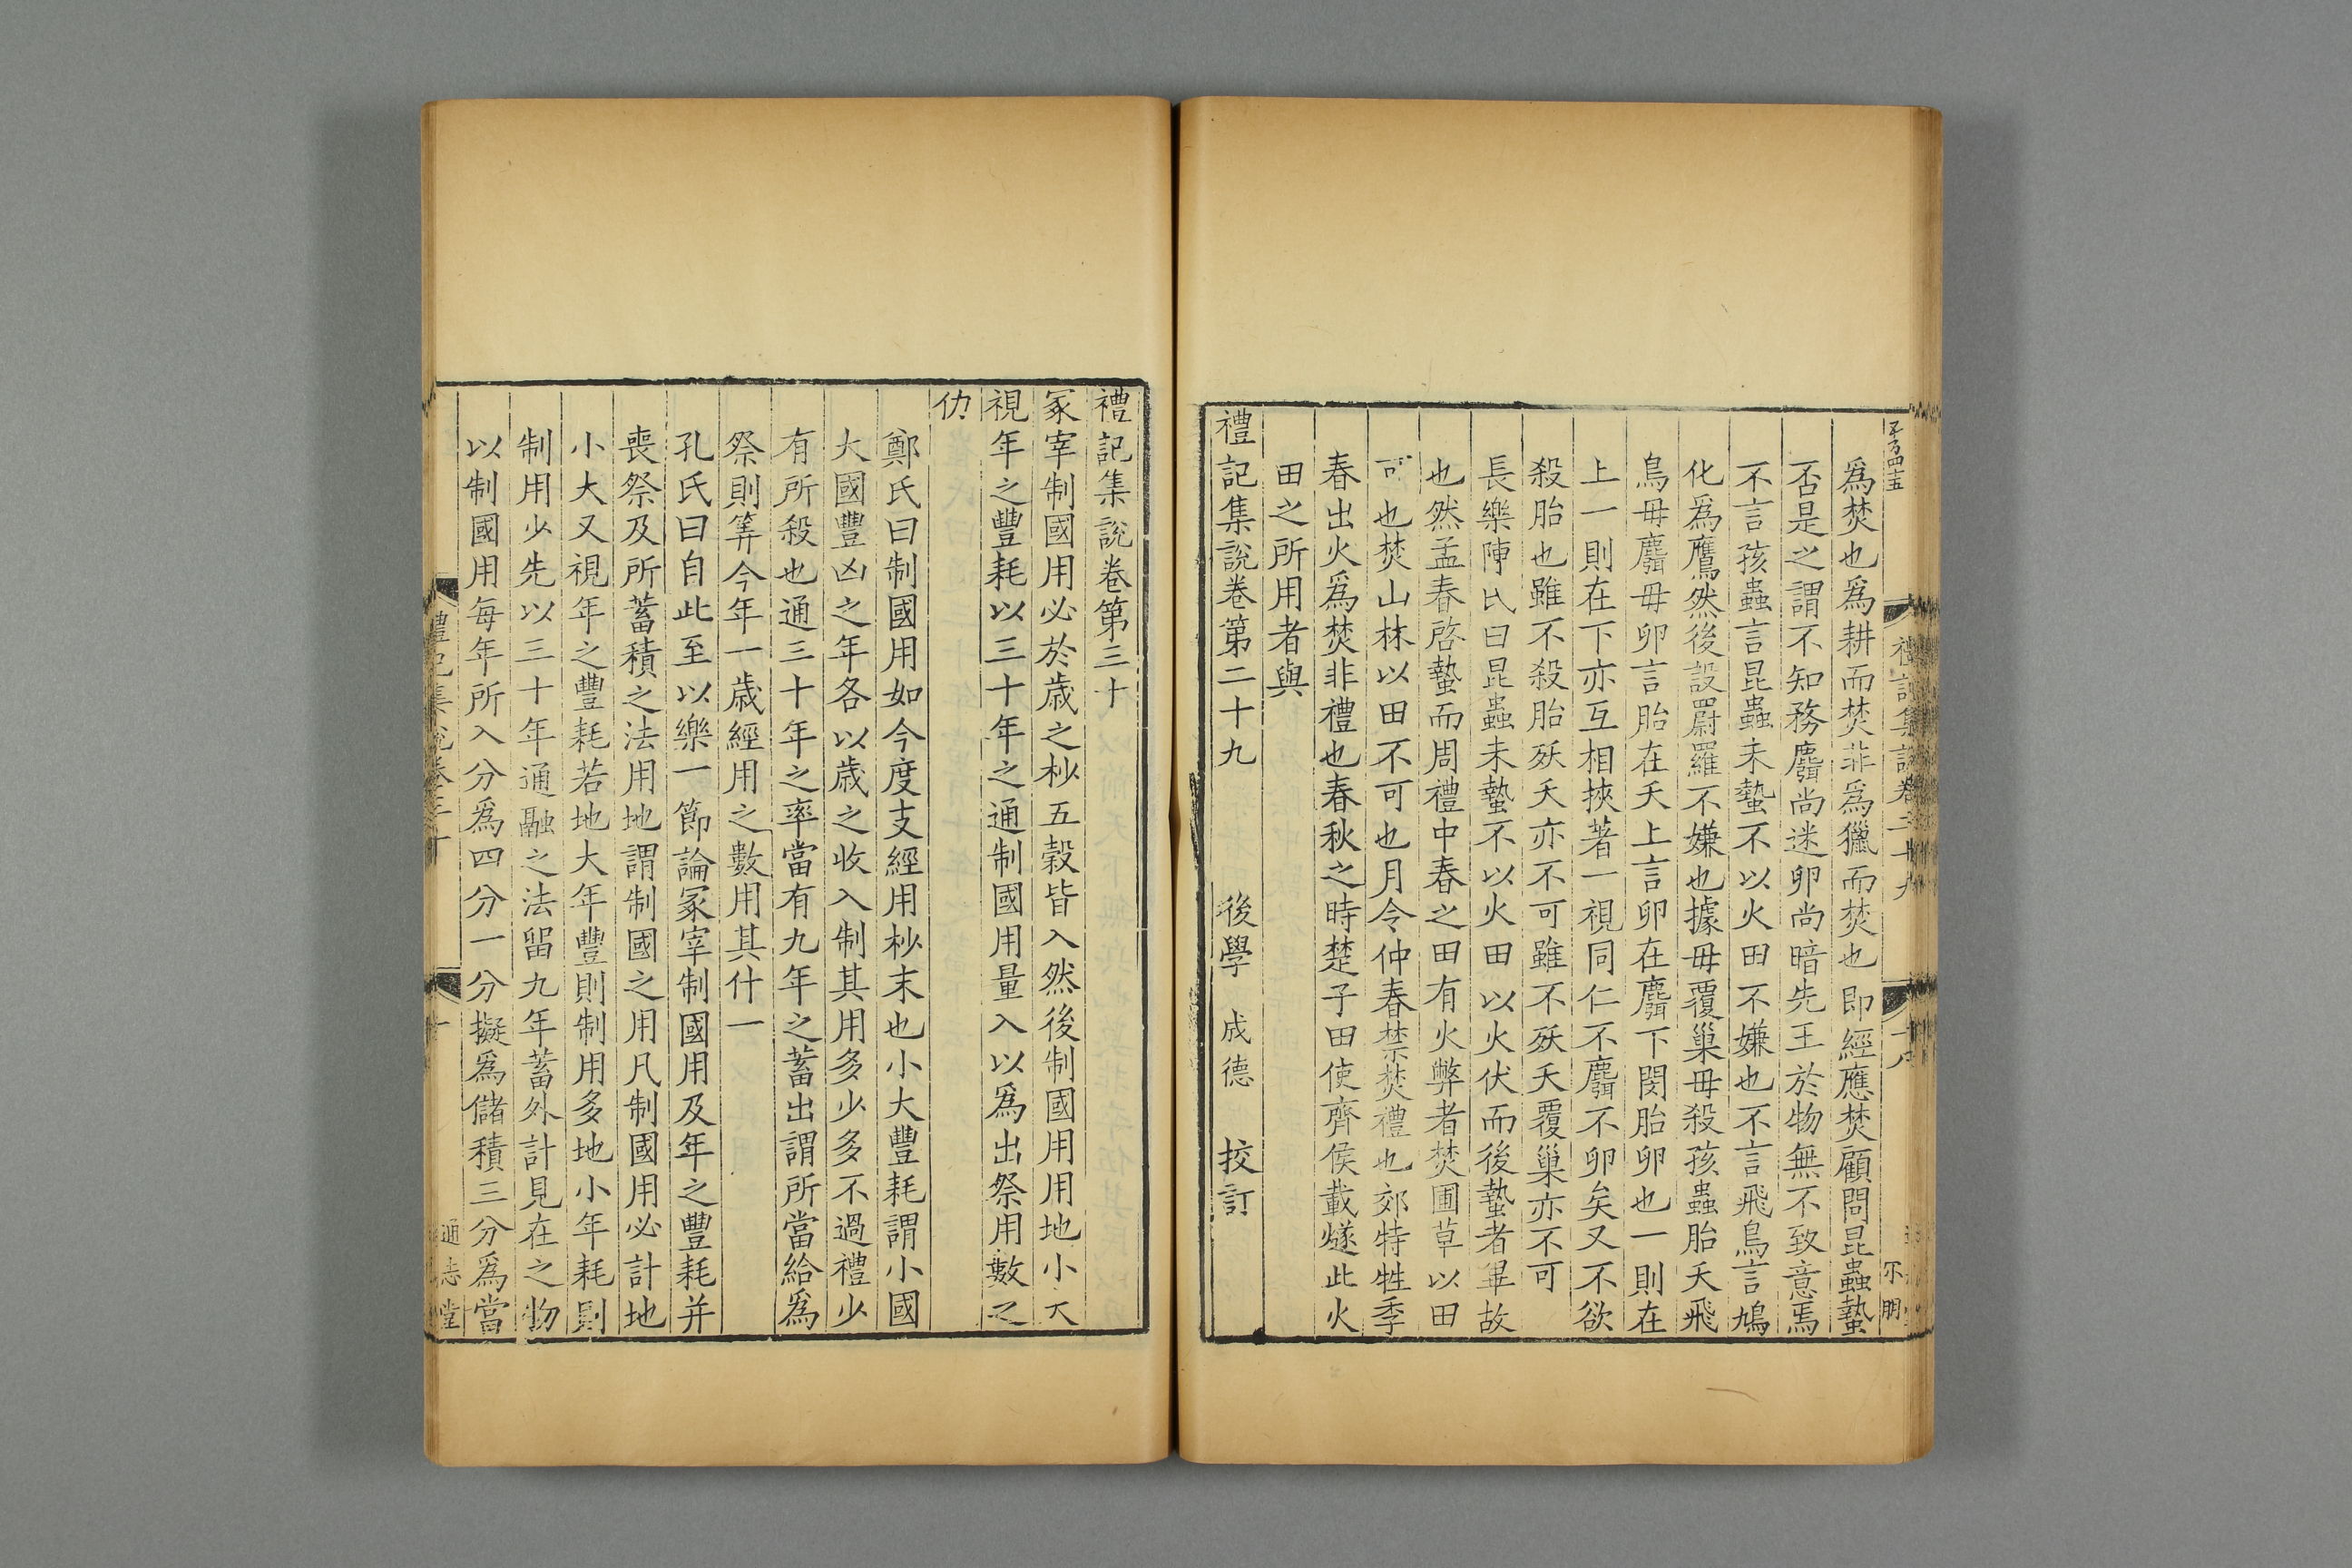 爲焚也爲耕而焚非爲獵而焚也即經應焚顧問昆蟲蟄
否是之謂不知務麛尚迷卵尚暗先王於物無不致意焉
不言孩蟲言昆蟲未蟄不以火田不嫌也不言飛鳥言鳩
化爲鷹然後設罻羅不嫌也據毋覆巢毋殺孩蟲胎夭飛
鳥毋麛毋卵言胎在夭上言卵在麛下閔胎卵也一則在
上一則在下亦互相挾著一視同仁不麛不卵矣又不欲
殺胎也雖不殺胎殀夭亦不可雖不殀夭覆巢亦不可
長樂陳氏曰昆蟲未蟄不以火田以火伏而後蟄者畢故
也然孟春啓蟄而周禮中春之田有火弊者焚圃草以田
可也焚山林以田不可也月令仲春禁焚禮也郊特牲季
春出火爲焚非禮也春秋之時楚子田使齊侯載燧此火
田之所用者與
禮記集說卷第二十九
後學 成德 校訂
禮記集說卷第三十
冢宰制國用必於歲之杪五穀皆入然後制國用用地小大
視年之豐耗以三十年之通制國用量入以爲出祭用數之
仂
鄭氏曰制國用如今度支經用杪末也小大豐耗謂小國
大國豐凶之年各以歲之收入制其用多少多不過禮少
有所殺也通三十年之率當有九年之蓄出謂所當給爲
祭則筭今年一歲經用之數用其什一
孔氏曰自此至以樂一節論冢宰制國用及年之豐耗并
喪祭及所蓄積之法用地謂制國之用凡制國用必計地
小大又視年之豐耗若地大年豐則制用多地小年耗則
制用少先以三十年通融之法留九年蓄外計見在之物
以制國用每年所入分爲四分一分擬爲儲積三分爲當
禮記集說卷三十
一
通志堂